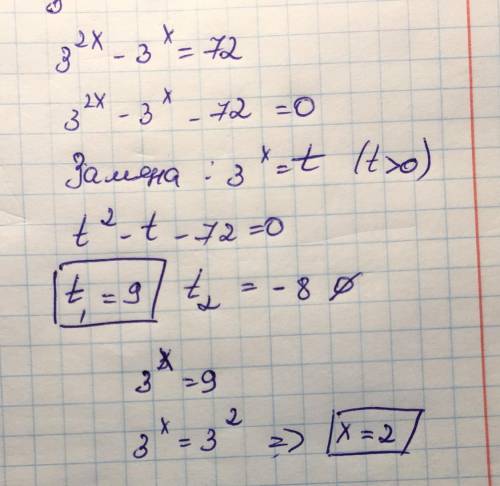 3^{2x} - 3^x = 72
3^{2x} - 3^x - 72 = 0
Замена : 3^x = t (t>0)
t^2 - t - 72 = 0
t_1 = 9 t_2 = -8 ∅
3^x = 9
3^x = 3^2 => x = 2